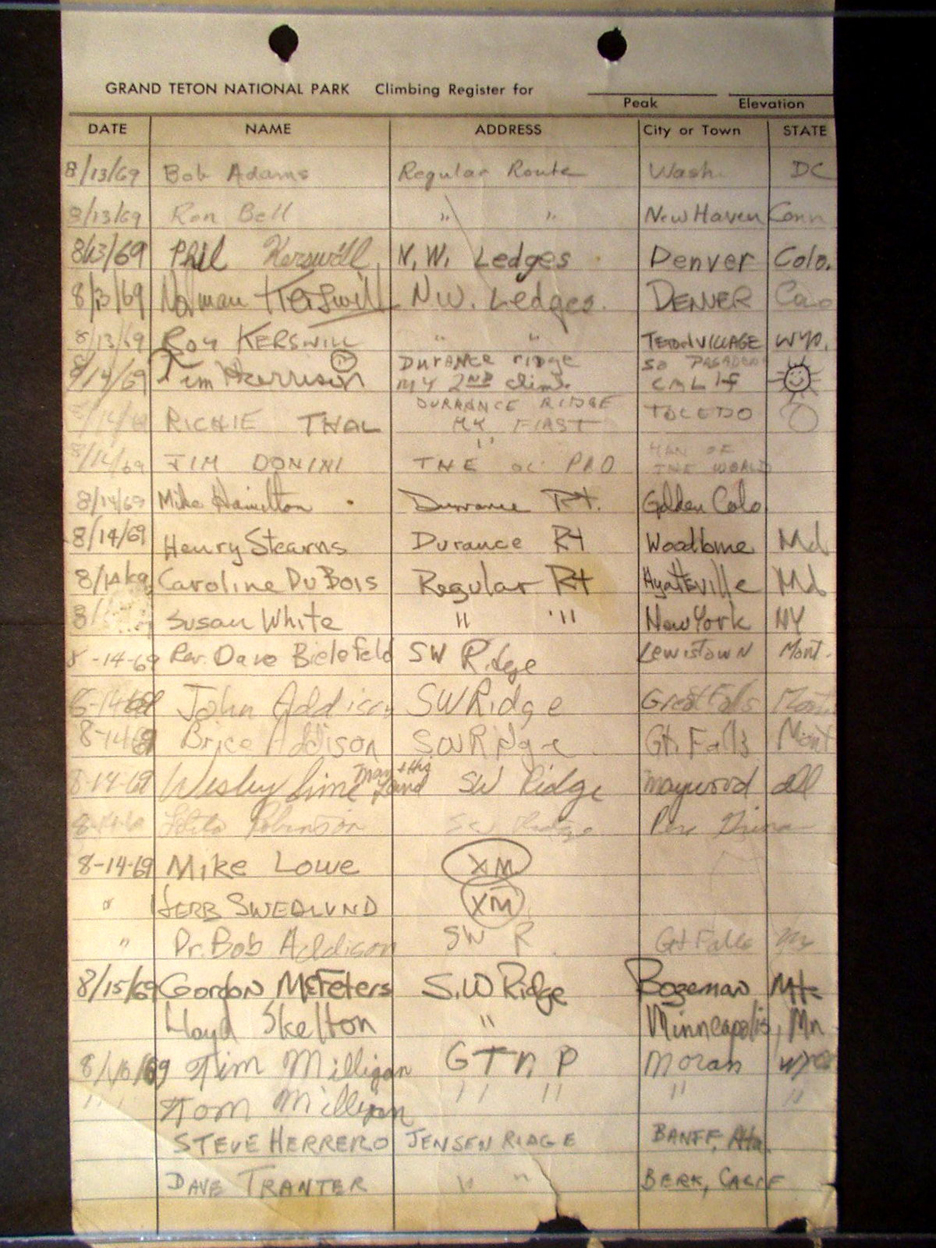 GRAND TETON NATIONAL PARK Climbing Register for
Peak Elevation
DATE NAME ADDRESS City or Town STATE
8/13/69 Bob Adams Regular Route Wash. DC
8/13/69 Ron Bell " " New Haven Conn
8/13/69 Phil Kerswill N.W. Ledges Denver Colo.
8/13/69 Norman Kerswill N.W. Ledges. DENVER Colo
8/13/69 Roy KERSWILL " " TETON VILLAGE WYO.
8/14/69 Tim Harrison DURANCE ridge MY 2ND climb. SO PASADENA CALIF
8/14/69 RICHIE THAL DURRANCE RIDGE MY FIRST TOLEDO
8/14/69 JIM DONINI " THE OL' PRO MAN OF THE WORLD
8/14/69 Mike Hamilton Durrance Rt. Golden Colo
8/14/69 Henry Stearns Durance Rt Woodbine Md
8/14/69 Caroline DuBois Regular Rt Hyattsville Md
8/ Susan White " " New York NY
8-14-69 Rev. Dave Bielefeld SW Ridge Lewistown Mont.
8-14-69 John Addison SW Ridge Great Falls Mont
8-14-69 Brice Addison SW Ridge Gt. Falls Mont
8-14-69 Wesley SW Ridge Maywood
Robinson SW Ridge
8-14-69 Mike Lowe XM
" HERB SWEDLUND XM
" Dr. Bob Addison SW R. Gt Falls
8/15/69 Gordon McFeters S.W Ridge Bozeman Mt
Lloyd Skelton " Minneapolis, Mn
8/16/69 Tim Milligan GTNP Moran Wyo
" " Tom Milligan " " " "
STEVE HERRERO JENSEN RIDGE BANFF, Alta.
DAVE TRANTER " " BERK, CALIF